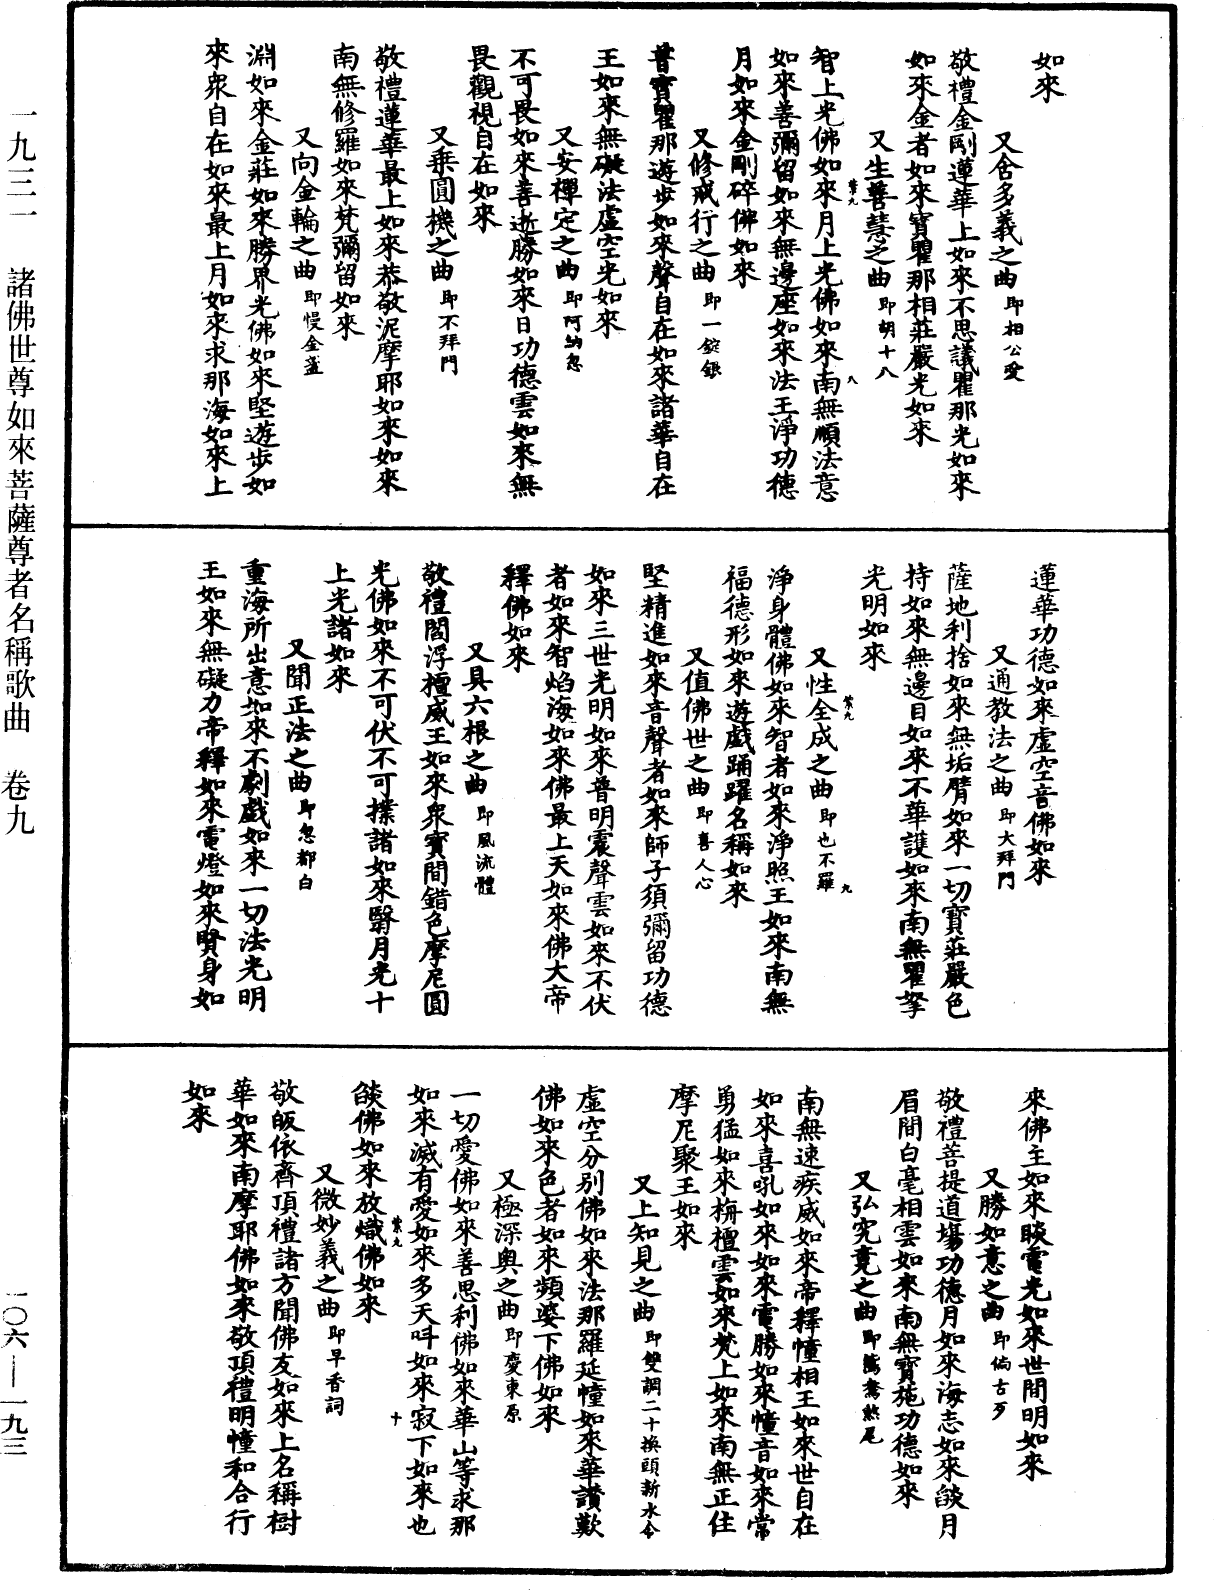 如來
又舍多義之曲 即相公愛
敬禮金剛蓮華上如來不思議瞿那光如來
如來金者如來寶瞿那相莊嚴光如來
又生善慧之曲 即胡十八
智上光佛如來月上光佛如來南無順法意
紫九
八
如來善彌留如來無邊座如來法王淨功德
月如來金剛碎佛如來
又修戒行之曲 即一錠銀
普寶瞿那遊步如來聲自在如來諸華自在
王如來無礙法虛空光如來
又安禪定之曲 即阿納忽
不可畏如來善逝勝如來日功德雲如來無
畏觀視自在如來
又乘圓機之曲 即不拜門
敬禮蓮華最上如來恭敬泥摩耶如來如來
南無修羅如來梵彌留如來
又向金輪之曲 即慢金盞
淵如來金莊如來勝界光佛如來堅遊步如
來眾自在如來最上月如來求那海如來上
蓮華功德如來虛空音佛如來
又通教法之曲 即大拜門
薩地利捨如來無垢臂如來一切寶莊嚴色
持如來無邊目如來不華護如來南無瞿拏
光明如來
又性全成之曲 即也不羅
紫九
九
淨身體佛如來智者如來淨照王如來南無
福德形如來遊戲踊躍名稱如來
又值佛世之曲 即喜人心
堅精進如來音聲者如來師子須彌留功德
如來三世光明如來普明震聲雲如來不伏
者如來智焰海如來佛最上天如來佛大帝
釋佛如來
又具六根之曲 即風流體
敬禮閻浮檀威王如來眾寶間錯色摩尼圓
光佛如來不可伏不可撲諸如來翳月光十
上光諸如來
又聞正法之曲 即忽都白
重海所出意如來不劇戲如來一切法光明
王如來無礙力帝釋如來電燈如來賢身如
來佛主如來睒電光如來世間明如來
又勝如意之曲 即倘古歹
敬禮菩提道場功德月如來海志如來燄月
眉間白毫相雲如來南無寶施功德如來
又弘究竟之曲 即鴛鴦煞尾
南無速疾威如來帝釋幢相王如來世自在
如來喜吼如來如來電勝如來幢音如來常
勇猛如來栴檀雲如來梵上如來南無正住
摩尼聚王如來
又上知見之曲 即雙調二十換頭新水令
虛空分別佛如來法那羅延幢如來華讚歎
佛如來色者如來頻婆下佛如來
又極深奧之曲 即慶東原
一切愛佛如來善思利佛如來華山等求那
如來滅有愛如來多天叫如來寂下如來也
燄佛如來放熾佛如來
紫九
十
又微妙義之曲 即早香詞
敬皈依齊頂禮諸方聞佛友如來上名稱樹
華如來南摩耶佛如來敬頂禮明幢和合行
如來
一九三一 諸佛世尊如來菩薩尊者名稱歌曲 卷九
一〇六—一九三